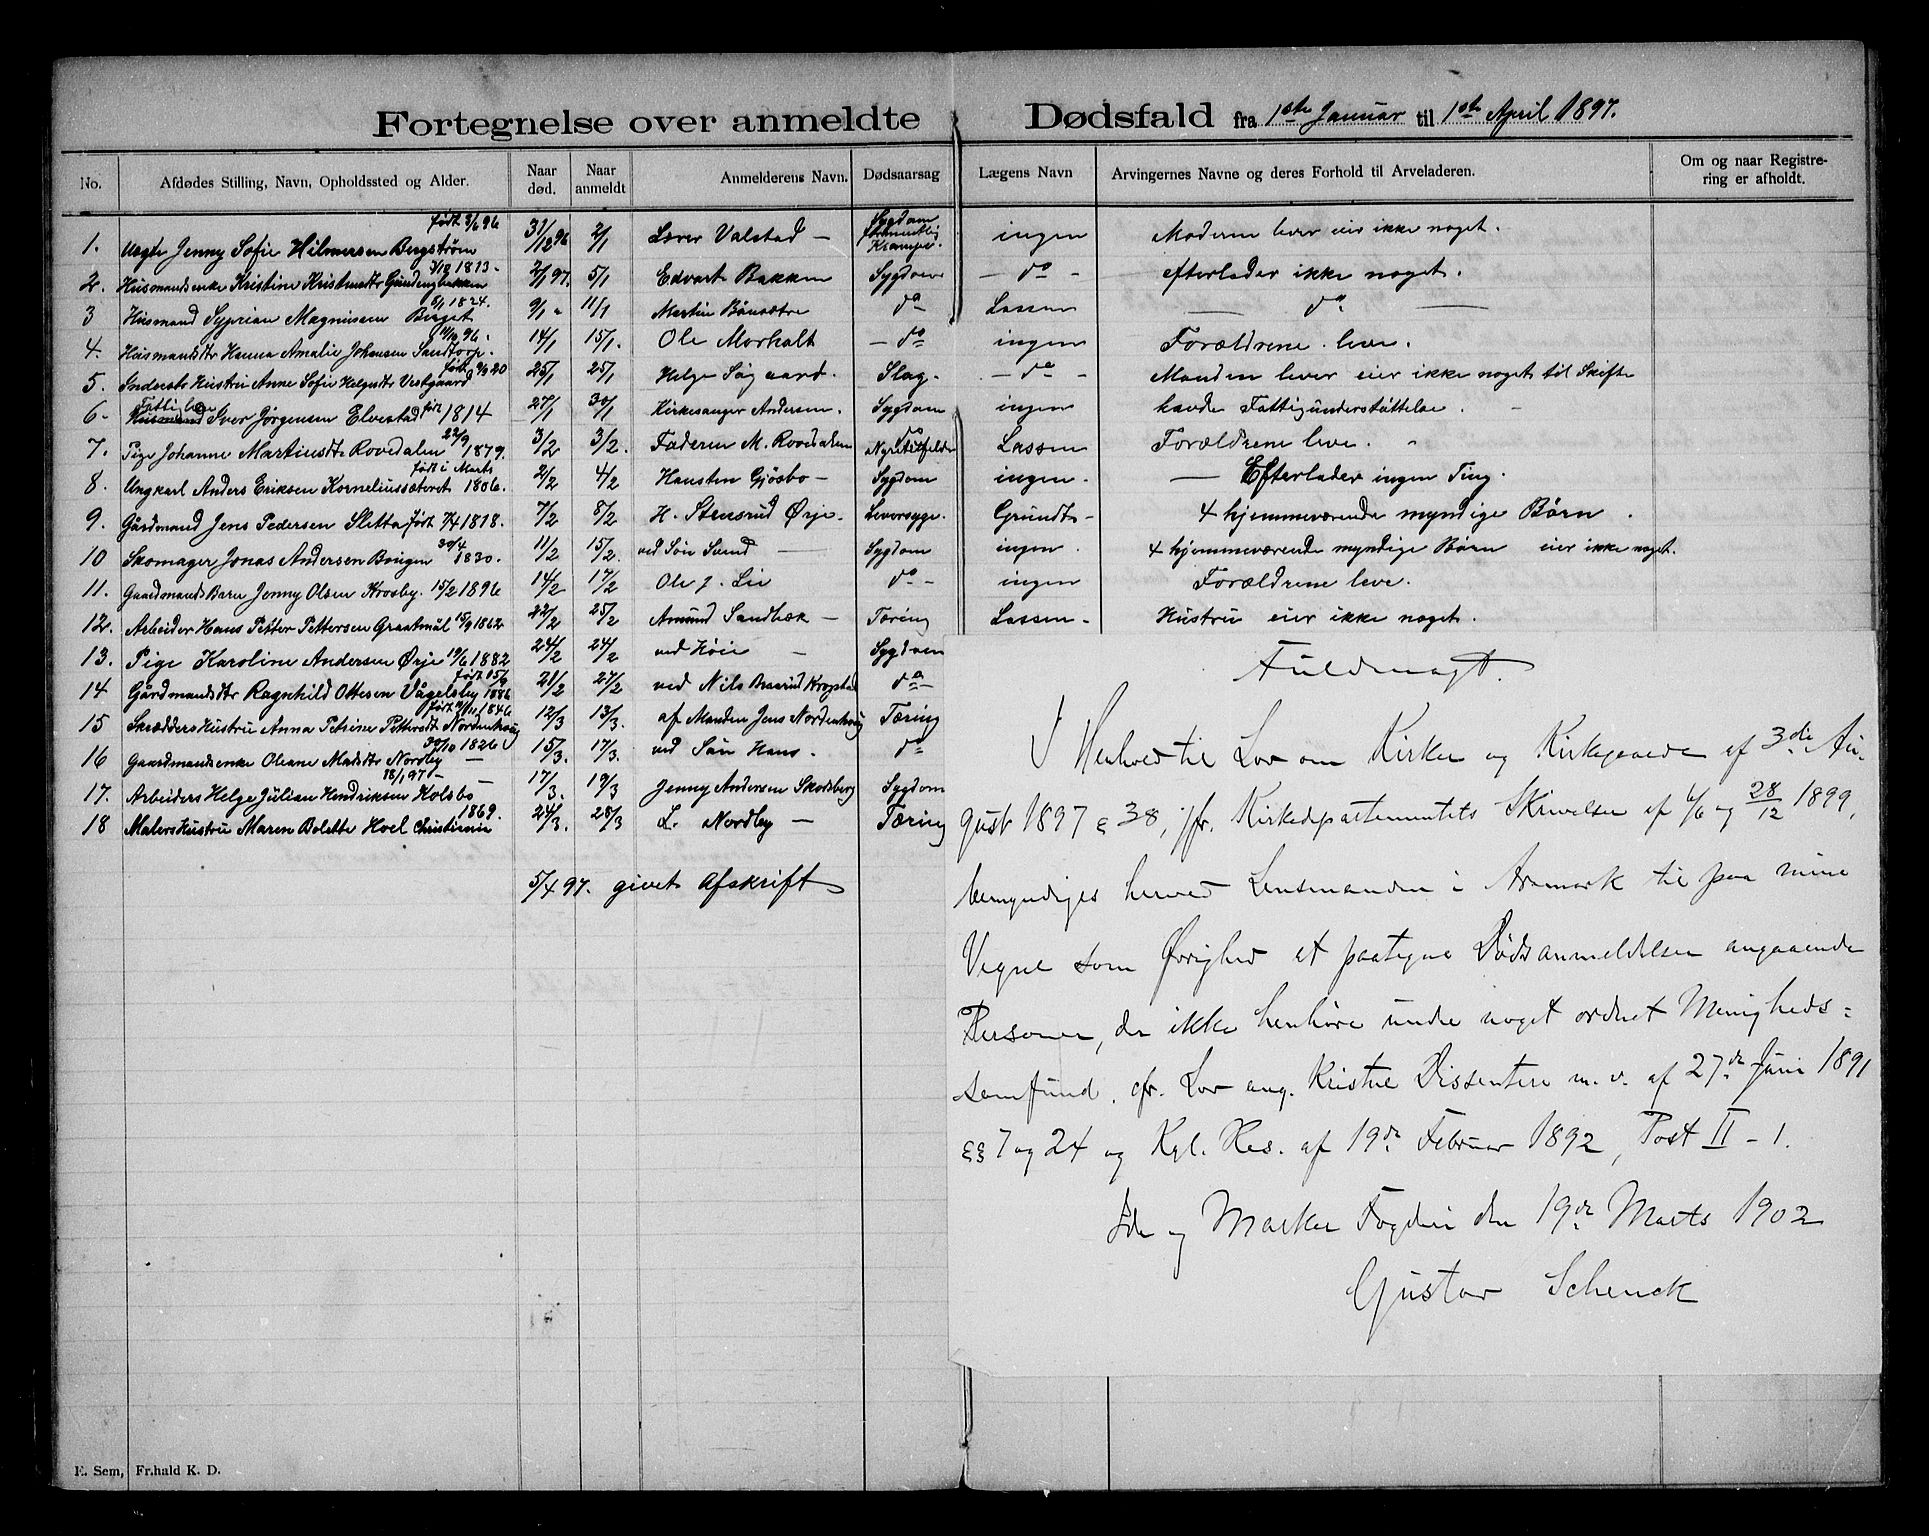 Fortegnelse over anmeldte Dødsfald fra 1ste Januar til 1ste April 1897.
No. Afdødes Stilling, Navn, Opholdssted og Alder. Naar død. Naar anmeldt Anmelderens Navn. Dødsaarsag Lægens Navn Arvingernes Navne og deres Forhold til Arveladeren. Om og naar Registrering er afholdt.
1. Uægte Jenny Sofie Hilmersen Bergstrøm født 3/6 96 31/12 96 2/1 Lærer Valstad — Sygdom Krampe. ingen Moderen lever eier ikke noget.
2. Husmandsenke Kristine Kristensdtr 1813 2/1 97. 5/1 Edvart Bakken Sygdom — do — efterlader ikke noget.
3 Husmand Syprian Magnusen Berget 8/1 1824. 9/1 " 11/1 Martin Bønsætre do Lassen — do —
4. Husmandsdtr Hanna Amalie Johansen Sandtorp. 96. 14/1 15/1. Ole Morhalt — do ingen Forældrene leve.
5. Inderste Hustru Anne Sofie Helgesdtr Vestgaard født 20 25/1 25/1 Helge Søgaard. Slag. — do — Manden lever eier ikke noget til Skifte
6. Fattiglem Husmand Iver Jørgensen Elvestad født 1814 27/1 30/1 Kirkesanger Andersen. Sygdom ingen havde Fattigunderstøttelse.
7. Pige Johanne Martinsdtr Rovedalen 22/9 1879. 3/2 3/2. Faderen M. Rovedalen do Lassen Forældrene leve.
8. Ungkarl Anders Eriksen Korneliussæteret født i Marts 1806. 2/2 4/2 Hansten Gjøsbo — Sygdom ingen. — Efterlader ingen Ting.
9. Gårdmand Jens Pedersen Sletta født 7/4 1818. 7/2 8/2 H. Stensrud Ørje. Leversyge. Grundt — 4 hjemmeværende myndige Børn.
10 Skomager Jonas Andersen Bongen 30/4 1830. 11/2 15/2. ved Søn Svend — Sygdom ingen. 4 hjemmeværende myndige Børn eier ikke noget.
11. Gaardmands Barn Jenny Olsen Krosby. 15/2 1896 14/2 17/2 Ole J. Lie do — ingen Forældrene leve.
12. Arbeider Hans Petter Pettersen Graatmål 15/9 1862 22/2 25/2 Amund Sandbæk — Tæring Lassen. Hustru eier ikke noget.
13. Pige Karoline Andersen Ørje 19/6 1882 24/2 24/2 ved Høie — Sygdom
14 Gårdmandsdtr Ragnhild Ottesen Vågelsby født 15/9 1886 21/2 27/2 ved Nils Braarud Krogstad do —
15 Skrædders Hustru Anna Petrine Pettersdtr Nordenhaug født 1846 12/3 13/3. af Manden Jens Nordenhaug Tæring
16 Gaardmandsenke Oleane Madsdtr Nordby — 30/10 1826 15/3. 17/3. ved Søn Hans. do
17. Arbeiders Helge Julian Hendriksen Kolsbo — 18/1 97 — 17/3. 19/3 Jenny Andersen Skodsberg Sygdom
18 Malers Hustru Maren Bolette Hoel Christiania 1869. 24/3. 28/3 L. Nordby — Tæring
5/4 97. givet Afskrift
Fuldmagt.
I Henhold til Lov om Kirker og Kirkegaarde af 3die Au-
gust 1897 § 38, jfr. Kirkedepartementets Skrivelser af 6/6 og 28/12 1899,
bemyndiges herved Lensmanden i Aremark til paa mine
Vegne som Øvrighed at paategne Dødsanmeldelser angaaende
Personer, der ikke henhøre under noget ordnet Menigheds=
samfund, cfr. Lov ang. Kristne Dissentere m. v. af 27de Juni 1891
§§ 7 og 24 og Kgl. Res. af 19de Februar 1892, Post II – 1.
Ide og Marker Fogderi den 19de Marts 1902
Gustav Schenck
E. Sem, Fr.hald K. D.